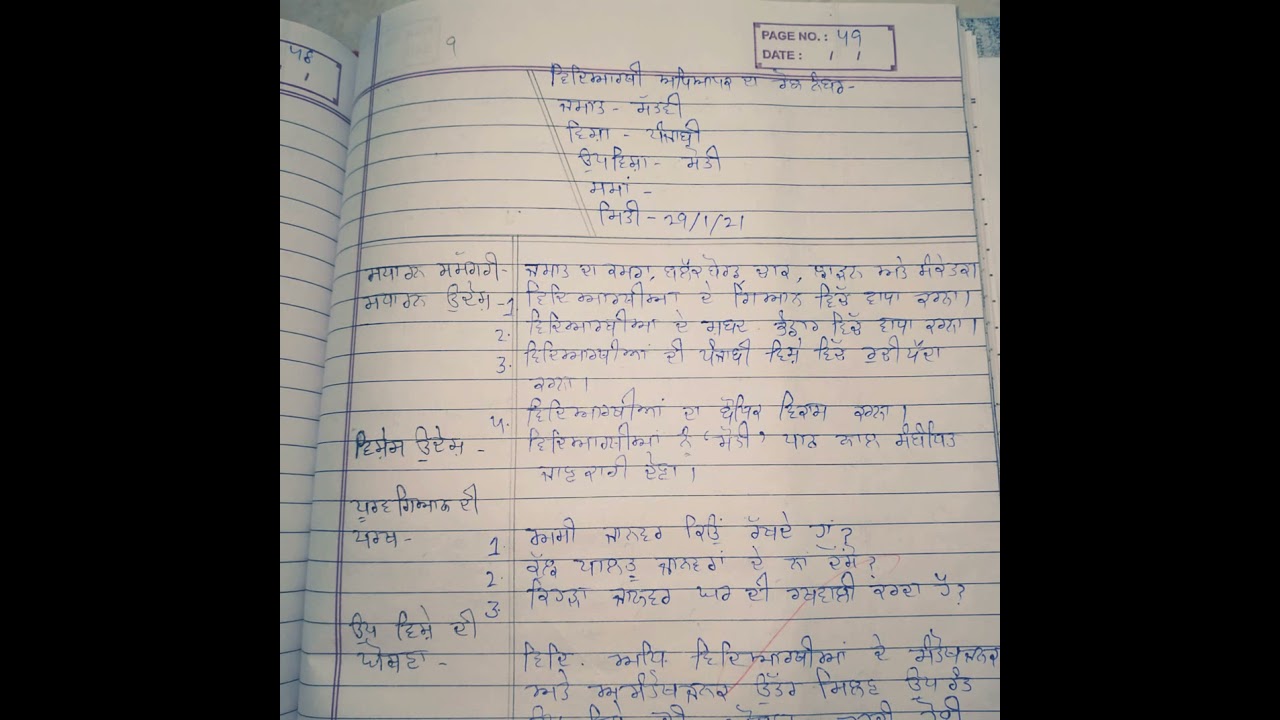 ੫੪
9
PAGE NO.: 49
DATE: / /
ਵਿਦਿਆਰਥੀ ਅਧਿਆਪਕ ਦਾ ਰੋਲ ਨੰਬਰ-
ਜਮਾਤ - ਸੱਤਵੀਂ
ਵਿਸ਼ਾ - ਪੰਜਾਬੀ
ਉਪਵਿਸ਼ਾ - ਮੋਤੀ
ਸਮਾਂ -
ਮਿਤੀ - 29/1/21
ਸਧਾਰਨ ਸਮੱਗਰੀ - ਜਮਾਤ ਦਾ ਕਮਰਾ, ਬਲੈਕ ਬੋਰਡ, ਚਾਕ, ਝਾੜਨ ਅਤੇ ਸੰਕੇਤਕ।
ਸਧਾਰਨ ਉਦੇਸ਼ - 1 ਵਿਦਿਆਰਥੀਆਂ ਦੇ ਗਿਆਨ ਵਿੱਚ ਵਾਧਾ ਕਰਨਾ।
2. ਵਿਦਿਆਰਥੀਆਂ ਦੇ ਸ਼ਬਦ ਭੰਡਾਰ ਵਿੱਚ ਵਾਧਾ ਕਰਨਾ।
3. ਵਿਦਿਆਰਥੀਆਂ ਦੀ ਪੰਜਾਬੀ ਵਿਸ਼ੇ ਵਿੱਚ ਰੁਚੀ ਪੈਦਾ
ਕਰਨਾ।
4. ਵਿਦਿਆਰਥੀਆਂ ਦਾ ਬੌਧਿਕ ਵਿਕਾਸ ਕਰਨਾ।
ਵਿਸ਼ੇਸ਼ ਉਦੇਸ਼ - ਵਿਦਿਆਰਥੀਆਂ ਨੂੰ 'ਮੋਤੀ' ਪਾਠ ਨਾਲ ਸੰਬੰਧਿਤ
ਜਾਣਕਾਰੀ ਦੇਣਾ।
ਪੂਰਵ ਗਿਆਨ ਦੀ
ਪਰਖ - 1. ਅਸੀਂ ਜਾਨਵਰ ਕਿਉਂ ਰੱਖਦੇ ਹਾਂ?
2. ਕੁੱਝ ਪਾਲਤੂ ਜਾਨਵਰਾਂ ਦੇ ਨਾਂ ਦੱਸੋ?
3. ਕਿਹੜਾ ਜਾਨਵਰ ਘਰ ਦੀ ਰਖਵਾਲੀ ਕਰਦਾ ਹੈ?
ਉਪ ਵਿਸ਼ੇ ਦੀ
ਘੋਸ਼ਣਾ - ਵਿਦਿ. ਅਧਿ. ਵਿਦਿਆਰਥੀਆਂ ਦੇ ਸੰਤੋਖਜਨਕ
ਅਤੇ ਅਸੰਤੋਖਜਨਕ ਉੱਤਰ ਮਿਲਣ ਉਪਰੰਤ